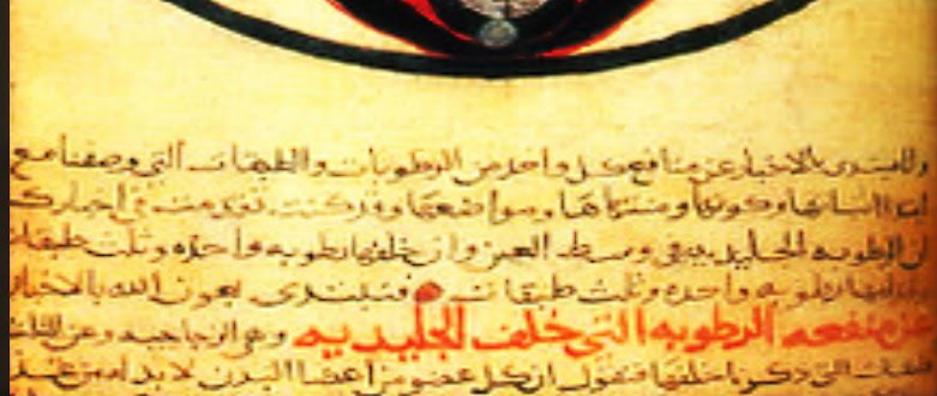 ولنبتدى بالاخبار عن منافع كل واحد من الرطوبات والطبقات التى وصفنا مع
وكونها ومنتهاها ومواضعها وقد كنت قدمت فى اخبارك
ان الرطوبه الجليديه فى وسط العين وان خلفها رطوبه واحده وثلث طبقات
رطوبه واحده وثلث طبقات فنبتدى بعون الله بالاخبار
عن منفعه الرطوبه التى خلف الجليديه وهى الزجاجيه وعن الثلث
طبقات التى ذكرنا خلفها فنقول ان كل عضو من اعضا البدن لا بد له من